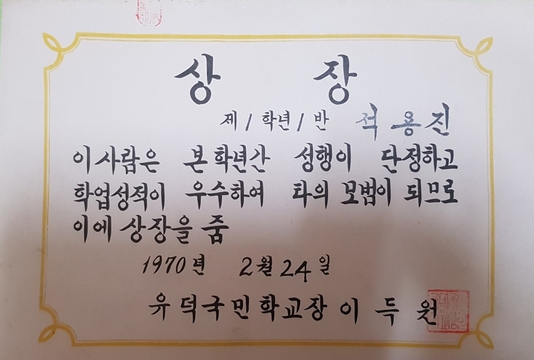 상 장
제1학년1반 석용진
이사람은 본학년간 성행이 단정하고
학업성적이 우수하여 타의 모범이 되므로
이에 상장을 줌
1970년 2월 24일
유덕국민학교장 이득원